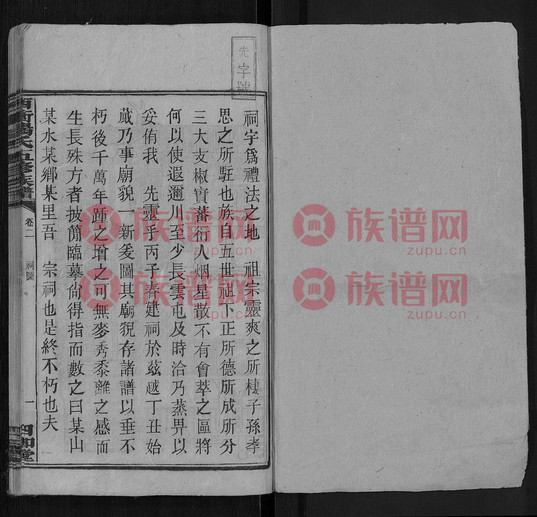 先
字號
祠宇爲禮法之地　祖宗靈爽之所棲子孫孝
思之所馭也族自五世祖下正所德所成所分
三大支椒實蕃衍人烟星散不有會萃之區將
何以使遐邇川至少長雲屯及時洽乃蒸畀以
妥侑我　先靈乎丙子齊建祠於茲越丁丑始
蕆乃事廟貌一新爰圖其廟貎存諸譜以垂不
朽後千萬年踵之增之可無麥秀黍離之感而
生長殊方者披閲臨摹尙得指而數之曰某山
某水某鄉某里吾　宗祠也是終不朽也夫
五修族譜
卷二
祠圖
一
族谱网
zupu.cn
族谱网
zupu.cn